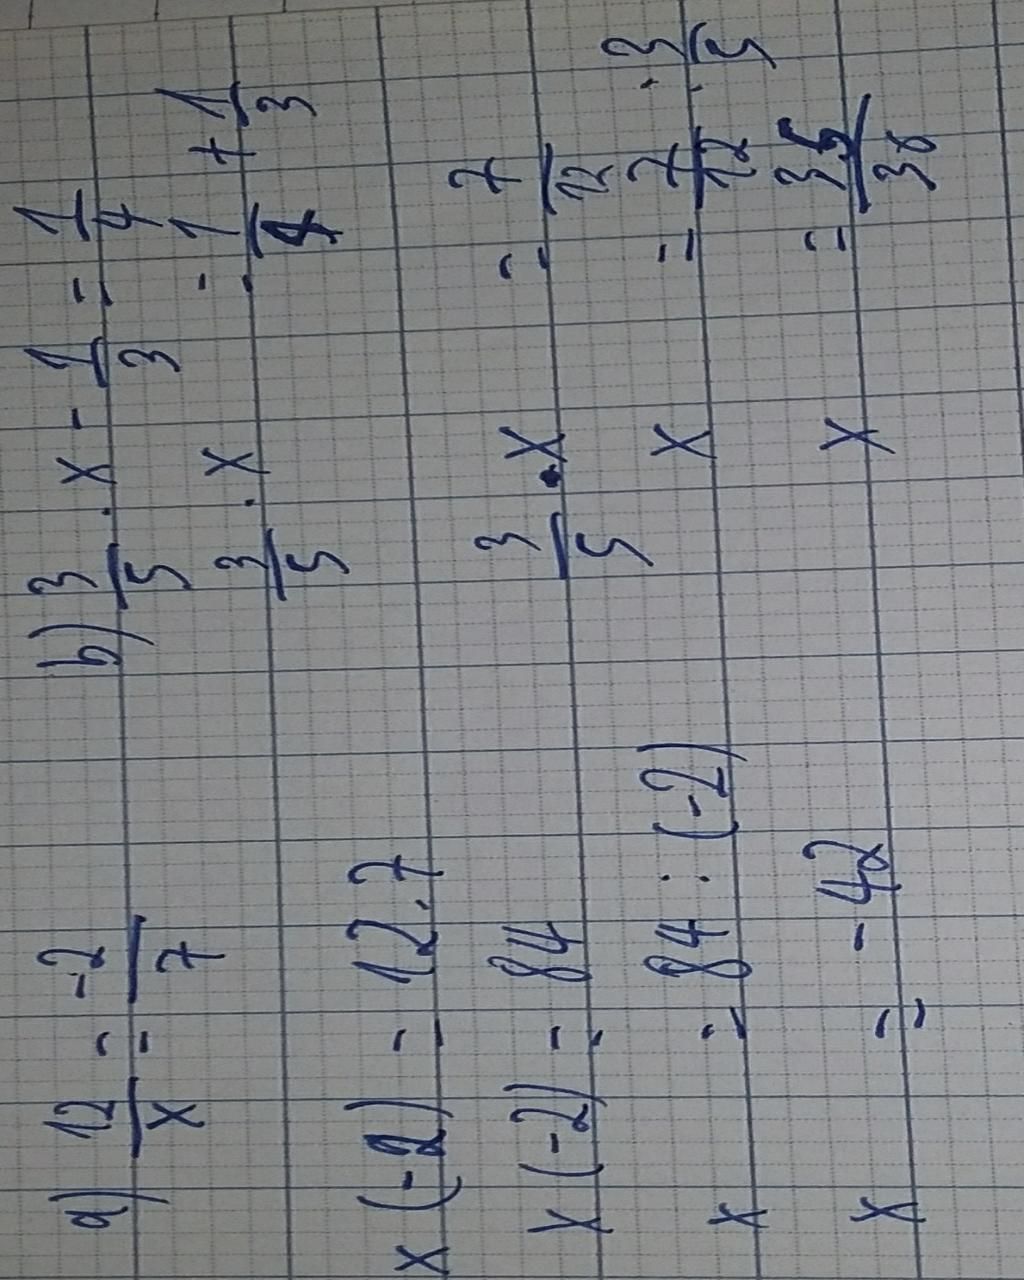 a) 12/x = -2/7
x (-2) = 12.7
x (-2) = 84
x = 84 : (-2)
x = -42
b) 3/5 . x - 1/3 = 1/4
3/5 . x = 1/4 + 1/3
3/5 . x = 7/12
x = 7/12 : 3/5
x = 35/36